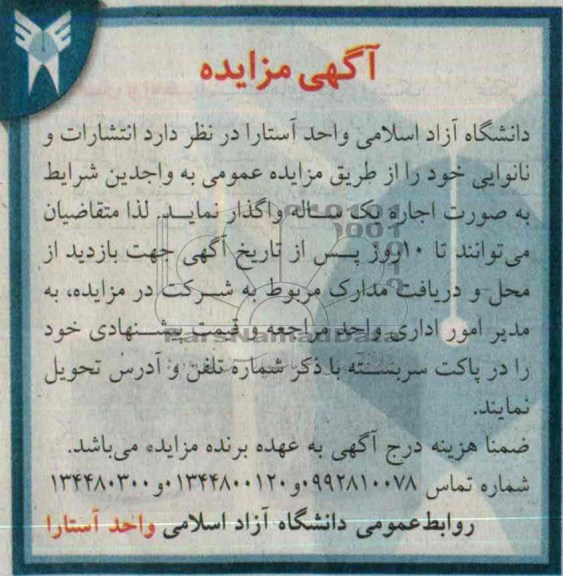 آگهی مزایده
دانشگاه آزاد اسلامی واحد آستارا در نظر دارد انتشارات و
نانوایی خود را از طریق مزایده عمومی به واجدین شرایط
به صورت اجاره یک ساله واگذار نماید. لذا متقاضیان
می‌توانند تا ۱۰روز پس از تاریخ آگهی جهت بازدید از
محل و دریافت مدارک مربوط به شرکت در مزایده، به
مدیر امور اداری واحد مراجعه و قیمت پیشنهادی خود
را در پاکت سربسته با ذکر شماره تلفن و آدرس تحویل
نمایند.
ضمنا هزینه درج آگهی به عهده برنده مزایده می‌باشد.
شماره تماس ۰۹۹۲۸۱۰۰۷۸و۰۱۳۴۴۸۰۰۱۲۰و۰۱۳۴۴۸۰۳۰۰
روابط‌عمومی دانشگاه آزاد اسلامی واحد آستارا
ParsNamadData